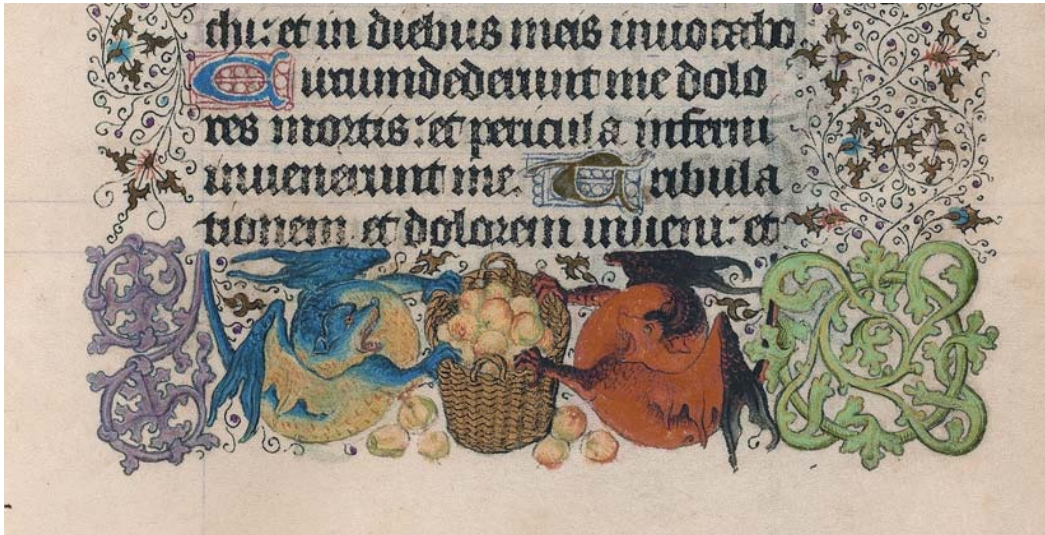 chi: et in diebus meis invocabo
Circumdederunt me dolo
res mortis: et pericula inferni
invenerunt me. Tribula
tionem et dolorem inveni: et